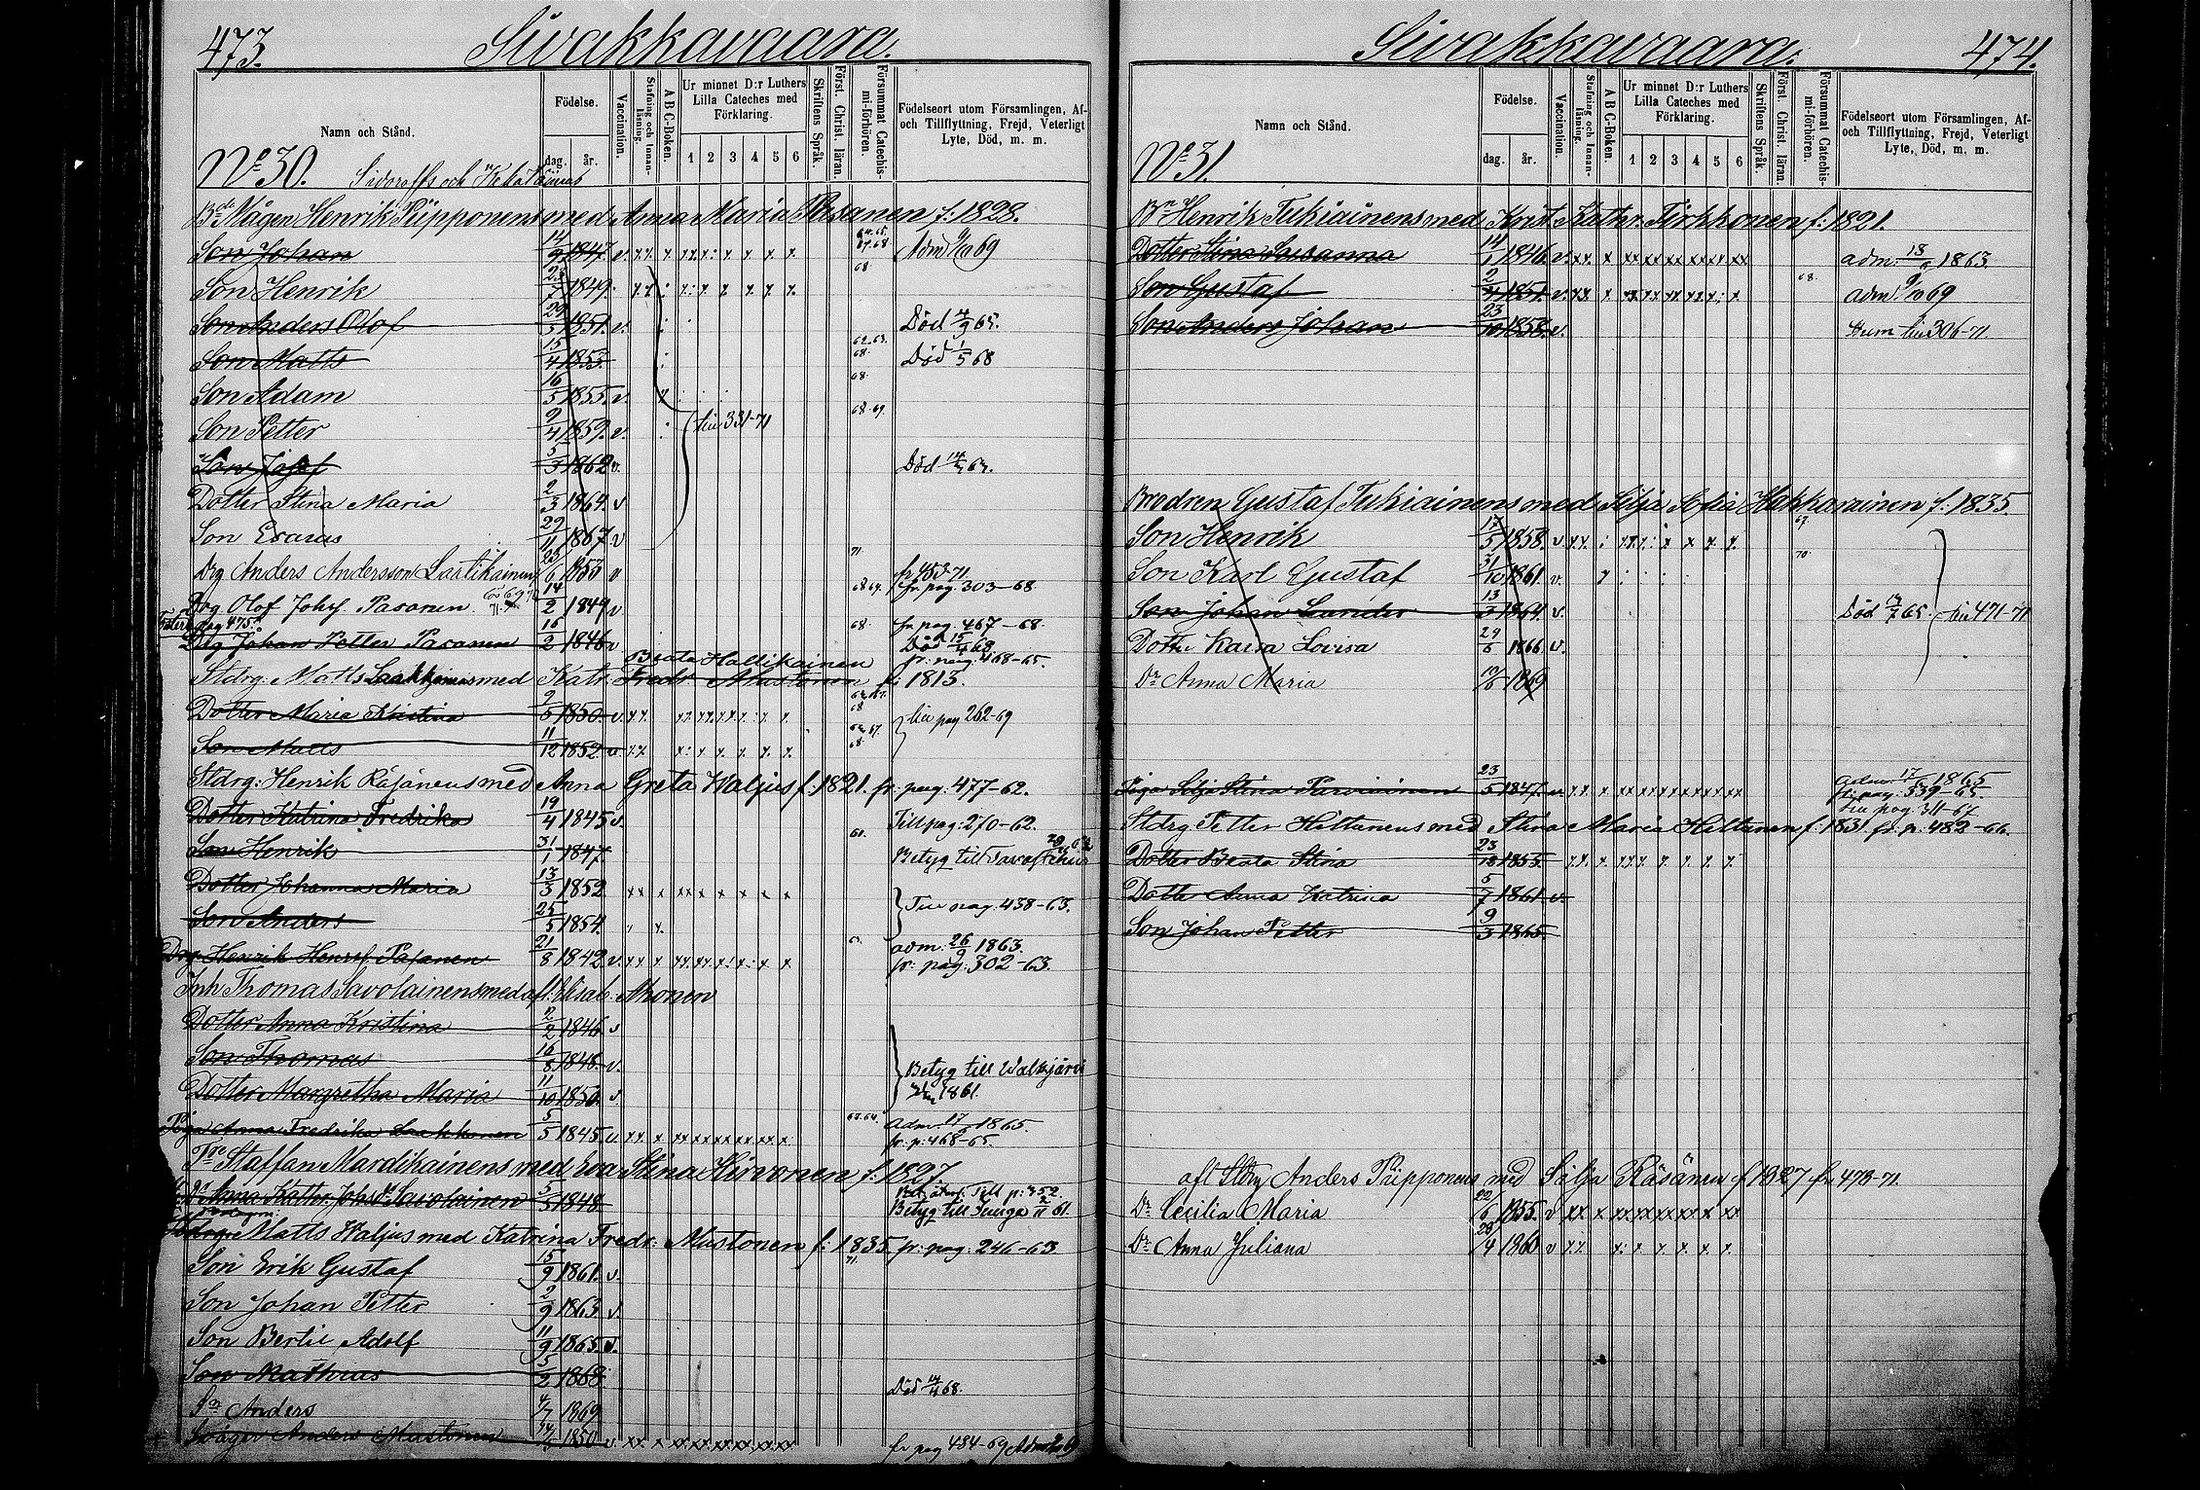 473. Sivakkavaara.
Namn och Stånd.
Födelse.
dag. år.
Vaccination.
Stafning och Innanläsning.
A B C-Boken.
Ur minnet D:r Luthers Lilla Cateches med Förklaring.
1 2 3 4 5 6
Skriftens Språk.
Först. Christ. läran.
Försummat Catechismi-förhören.
Födelseort utom Församlingen, Af- och Tillflyttning, Frejd, Veterligt Lyte, Död, m. m.
No 30. Sidoroffs och
Mågen Henrik Piipponens med Anna Maria Pasanen f: 1828.
Son Johan 14/9 1847. v. 64.65. 67.68 Adm 9/10 69
Son Henrik 23/7 1849. 68
Son Anders Olof 29/5 1851. v. Död 4/9 65.
Son Matts 15/4 1853 62.63. 68. Död 1/5 68
Son Adam 16/5 1855. v. 68.
Son Petter 9/4 1859. v. 68.69. till 331-71
Son Josef 5/3 1862 v. Död
Dotter Stina Maria 2/3 1864. v
Son Erasus 29/11 1867 v
Drg Anders Andersson Laatikainen 1853 v 71. fr 453-71
Drg Olof Johs. Pasanen 14/2 1849 v 68 69. fr. pag. 303-68
Drg Johan Petter Pasanen 16/2 1846 v 68. fr pag. 467-68. Död 15/4 68
Beata Hallikainen fr: pag: 468-65.
Stdrg: Matts med Katr. Fredr. Mustonen f: 1813.
Dotter Maria Kristina 9/5 1850. v. 68 till pag 262-69
Son Matts 11/12 1852 v. 68.
Stdrg: Henrik Räsänens med Anna Greta Waljus f: 1821. fr. pag: 477-62.
Dotter Katrina Fredrika 19/4 1845 v. Till pag: 270-62.
Son Henrik 31/1 1847. 61. Betyg till
Dotter Johanna Maria 13/3 1852.
Son Anders 25/5 1854. Till pag. 438-63.
Drg Henrik Henrs. Pasanen 21/8 1842 v. adm. 26/9 1863. fr: pag: 302-63.
Inh Thomas Savolainens med afl: Elisab: Ahonen
Dotter Anna Kristina 2/2 1846. v
Son Thomas 16/8 1848. v.
Dotter Margretha Maria 11/10 1850. v. Betyg till Walkjärvi 1861.
Piga Anna Fredrika Laakkonen 5/5 1845. v. 63.64. Adm. 17/9 1865. fr. p: 468-65.
Staffan Mardikainens med Eva Stina Hirvonen f: 1827.
Anna Kathr. Johsdr Savolainen 5/5 1848 Till p: 352. Betyg till 61.
Stdrg: Matts Waljus med Katrina Fredr: Mustonen f: 1835 fr: pag: 246-63
Son Erik Gustaf 15/9 1861. v. 71.
Son Johan Petter 2/9 1863 v.
Son Bertil Adolf 11/9 1865. v.
Son Mathias 5/2 1868. Död 14/4 68.
Sn Anders 4/7 1869
Svåger Anders Mustonen 1850 v. fr pag 484-69
Sivakkavaara. 474.
Namn och Stånd.
Födelse.
dag. år.
Vaccination.
Stafning och Innanläsning.
A B C-Boken.
Ur minnet D:r Luthers Lilla Cateches med Förklaring.
1 2 3 4 5 6
Skriftens Språk.
Först. Christ. läran.
Försummat Catechismi-förhören.
Födelseort utom Församlingen, Af- och Tillflyttning, Frejd, Veterligt Lyte, Död, m. m.
No 31.
Br Henrik Tukiainens med Krist. Kathr. Tirkkonen f: 1821.
Dotter Stina Susanna 14/1 1846. v. adm. 1863.
Son Gustaf 1851. v. 68. adm 9/10 69
Son Anders Johan 23/10 1858. v. till 306-71.
Brodren Gustaf Tukiainens med Silja Sofia Hakkarainen f: 1835.
Son Henrik 17/5 1858. v 67.
Son Karl Gustaf 31/10 1861. v. 70.
Son Johan Leander 13/3 1864. v. Död 14/7 65. till 471-71
Dotter Kaisa Lovisa 29/6 1866. v.
Dr Anna Maria 1869
Piga Silja Stina Parviainen 23/5 1847. v. adm. 17/9 1865 fr pag: 539-65 till pag: 311-67
Stdrg Petter Hiltunens med Stina Maria Hiltunen f: 1831 fr. p: 482-66.
Dotter Beata Stina 23/12 1853.
Dotter Anna Katrina 5/7 1861. v.
Son Johan Petter 9/3 1865.
aft Stdrg Anders Piipponens med Silja Räsänen f 1827 fr 473-71.
Dr Cecilia Maria 22/6 1855. v
Dr Anna Juliana 28/4 1860 v